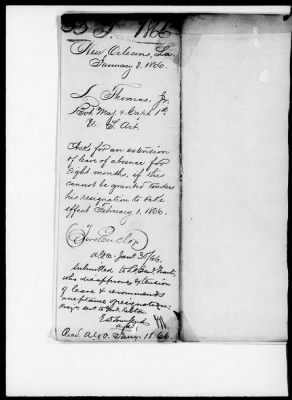 1866
New Orleans, La
January 8, 1866.
L Thomas, Jr.
Bvt Maj. & Capt. 1st
U. S. Art.
Asks for an extension
of leave of absence for
eight months, if this
cannot be granted tenders
his resignation to take
effect February 1. 1866.
Two Encls.
A.G.O. Jany 30/66.
Submitted to Lt Genl Grant,
who disapproves extension
of leave & recommends
acceptance of resignation.
A.A.G.
Recd. A.G.O. Jany. 18. 66.